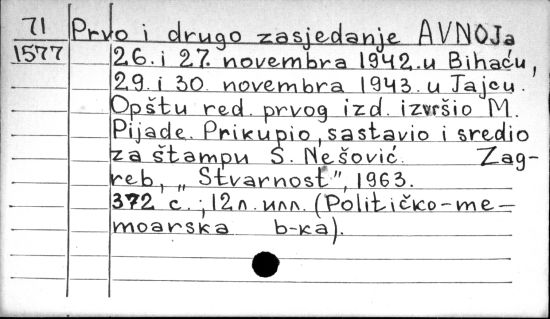 71 Prvo i drugo zasjedanje AVNOJa
1577 26. i 27. novembra 1942. u Bihaću,
29. i 30. novembra 1943. u Jajcu.
Opštu red. prvog izd. izvršio M.
Pijade. Prikupio, sastavio i sredio
za štampu S. Nešović. Zag-
reb, „Stvarnost", 1963.
372 с.; 12 л. илл. (Političko-me-
moarska b-ka).